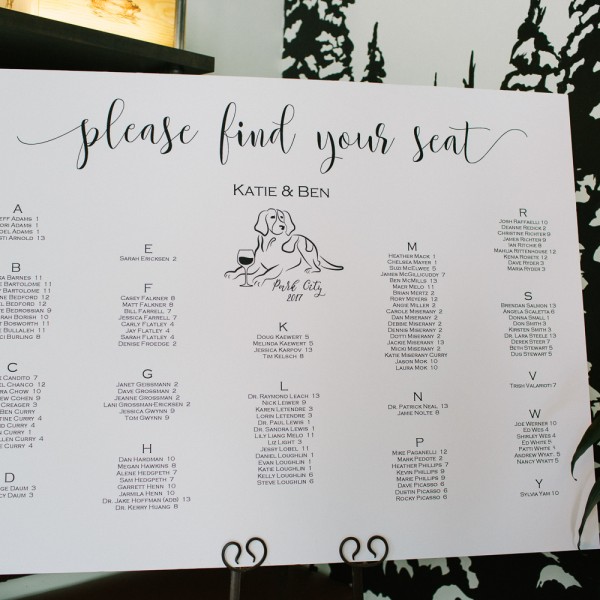 please find your seat
Katie & Ben
Park City
2017
A
Adams 1
Adams 1
Adams 1
Arnold 13
B
Barnes 11
Bartolome 11
Bartolome 11
Bedford 12
Bedford 12
Bedrossian 9
Borish 10
Bosworth 11
Bullaleh 11
Burling 8
C
Candito 7
Chanco 12
Chow 10
Cohen 9
Creager 3
Ben Curry
Curry 4
Curry 4
Curry 4
Curry 4
D
Daum 3
Daum 3
E
Sarah Ericksen 2
F
Casey Falkner 8
Matt Falkner 8
Bill Farrell 7
Jessica Farrell 7
Carly Flatley 4
Jay Flatley 4
Sarah Flatley 4
Denise Froedge 2
G
Janet Geissmann 2
Dave Grossman 2
Jeanne Grossman 2
Lani Grossman-Ericksen 2
Jessica Gwynn 9
Tom Gwynn 9
H
Dan Hardman 10
Megan Hawkins 8
Alene Hedgpeth 7
Sam Hedgpeth 7
Garrett Henn 10
Jarmila Henn 10
Dr. Jake Hoffman (add) 13
Dr. Kerry Huang 8
K
Doug Kaewert 5
Melinda Kaewert 5
Jessica Karpov 13
Tim Kelsch 8
L
Dr. Raymond Leach 13
Nick Leiwer 9
Karen Letendre 3
Lorin Letendre 3
Dr. Paul Lewis 1
Dr. Sandra Lewis 1
Lily Liang Melo 11
Liz Light 3
Jessy Lobel 11
Daniel Loughlin 1
Evan Loughlin 1
Katie Loughlin 1
Kelly Loughlin 6
Steve Loughlin 6
M
Heather Mack 1
Chelsea Mayer 1
Sud McElwee 5
James McGillicuddy 7
Ben McMills 13
Madi Melo 11
Brian Mertz 2
Rory Meyers 12
Angie Miller 2
Carole Miserany 2
Dan Miserany 2
Debbie Miserany 2
Dennis Miserany 2
Dotti Miserany 2
Jackie Miserany 13
Nicki Miserany 2
Katie Miserany Curry
Jason Mok 10
Laura Mok 10
N
Dr. Patrick Neal 13
Jamie Nolte 8
P
Mike Paganelli 12
Mark Pedote 2
Heather Phillips 7
Kevin Phillips 9
Marie Phillips 9
Dave Picasso 6
Dustin Picasso 6
Rocky Picasso 6
R
Josh Raffaelli 10
Deanne Redick 2
Christine Richter 9
James Richter 9
Ian Ritchie 8
Mahlia Rittenhouse 12
Kenia Rosete 12
Dave Ryder 3
Maria Ryder 3
S
Brendan Salmon 13
Angela Scaletta 6
Donna Small 1
Don Smith 3
Kirsten Smith 3
Dr. Lara Steele 13
Derek Steer 7
Beth Stewart 5
Dus Stewart 5
V
Trish Valarioti 7
W
Joe Werner 10
Ed Wes 4
Shirley Wes 4
Ed White 5
Patti White
Andrew Wyatt 5
Nancy Wyatt 5
Y
Sylvia Yam 10